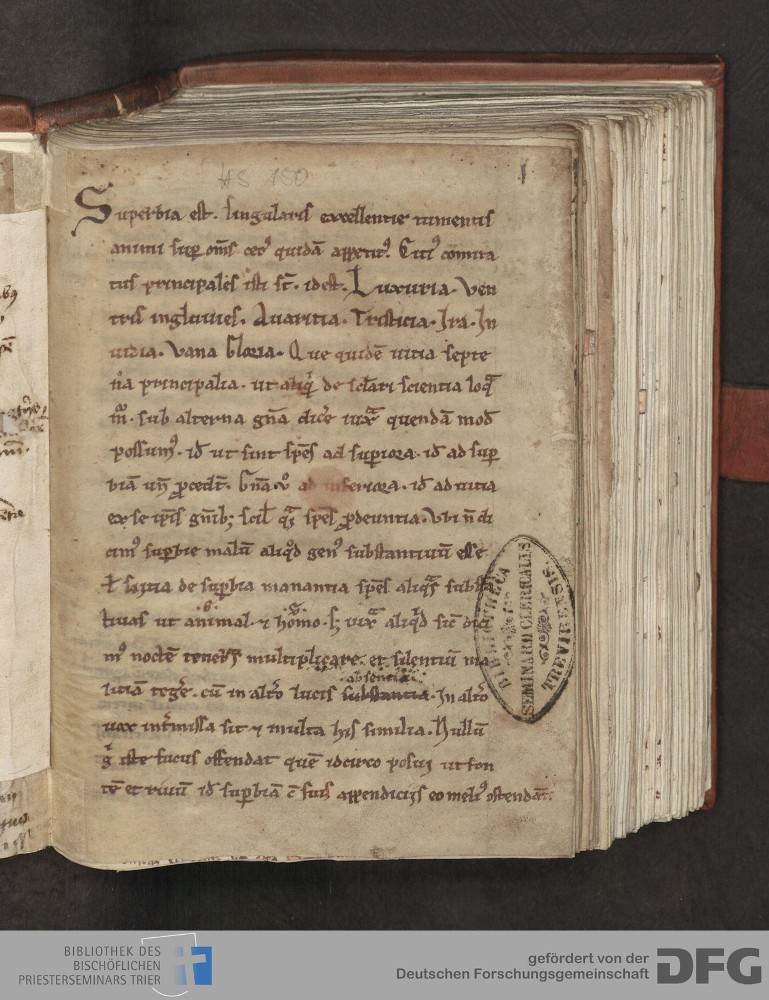 HS 150
1
Superbia est. singularis excellentie tumentis
animi sup om̅s cet⁹ quidā appetit⁹. Cui⁹ comita
tus principales isti st̅. id est. Luxuria. Ven
tris ingluuies. Auaritia. Tristicia. Ira. In
uidia. Vana Gloria. Que quidē uitia septe
principalia. ut de scientia
sub alterna gn̅a dic̅e quendā mod
possum⁹. id ut sint sp̅es ad supiora. id ad sup
biā un̅ ꝓcedt̅. Gn̅a ad inferiora. id ad uitia
ex se prodeuntia. Vbi n̅ di
cim⁹ supbie malū aliqd gen⁹ substantiuū esse
ł uitia de supbia manantia sp̅es substan
tiuas ut animal ⁊ homo. sic dici
m⁹ noctē multiplicare. et silentiū ma
absentia
litiā teg̅e. cū in alt̅o lucis substantia. In alt̅o
uox int̅missa sit ⁊ multa his similia. Nullū
g̊ iste fucus offendat quē idcirco posui ut fon
tē et riuū id supbiā c̅ suis appendiciis eo meli⁹ ostendā.
BIBLIOTHECA
SEMINARII CLERICALIS
TREVIRENSIS.
BIBLIOTHEK DES
BISCHÖFLICHEN
PRIESTERSEMINARS TRIER
gefördert von der
Deutschen Forschungsgemeinschaft
DFG